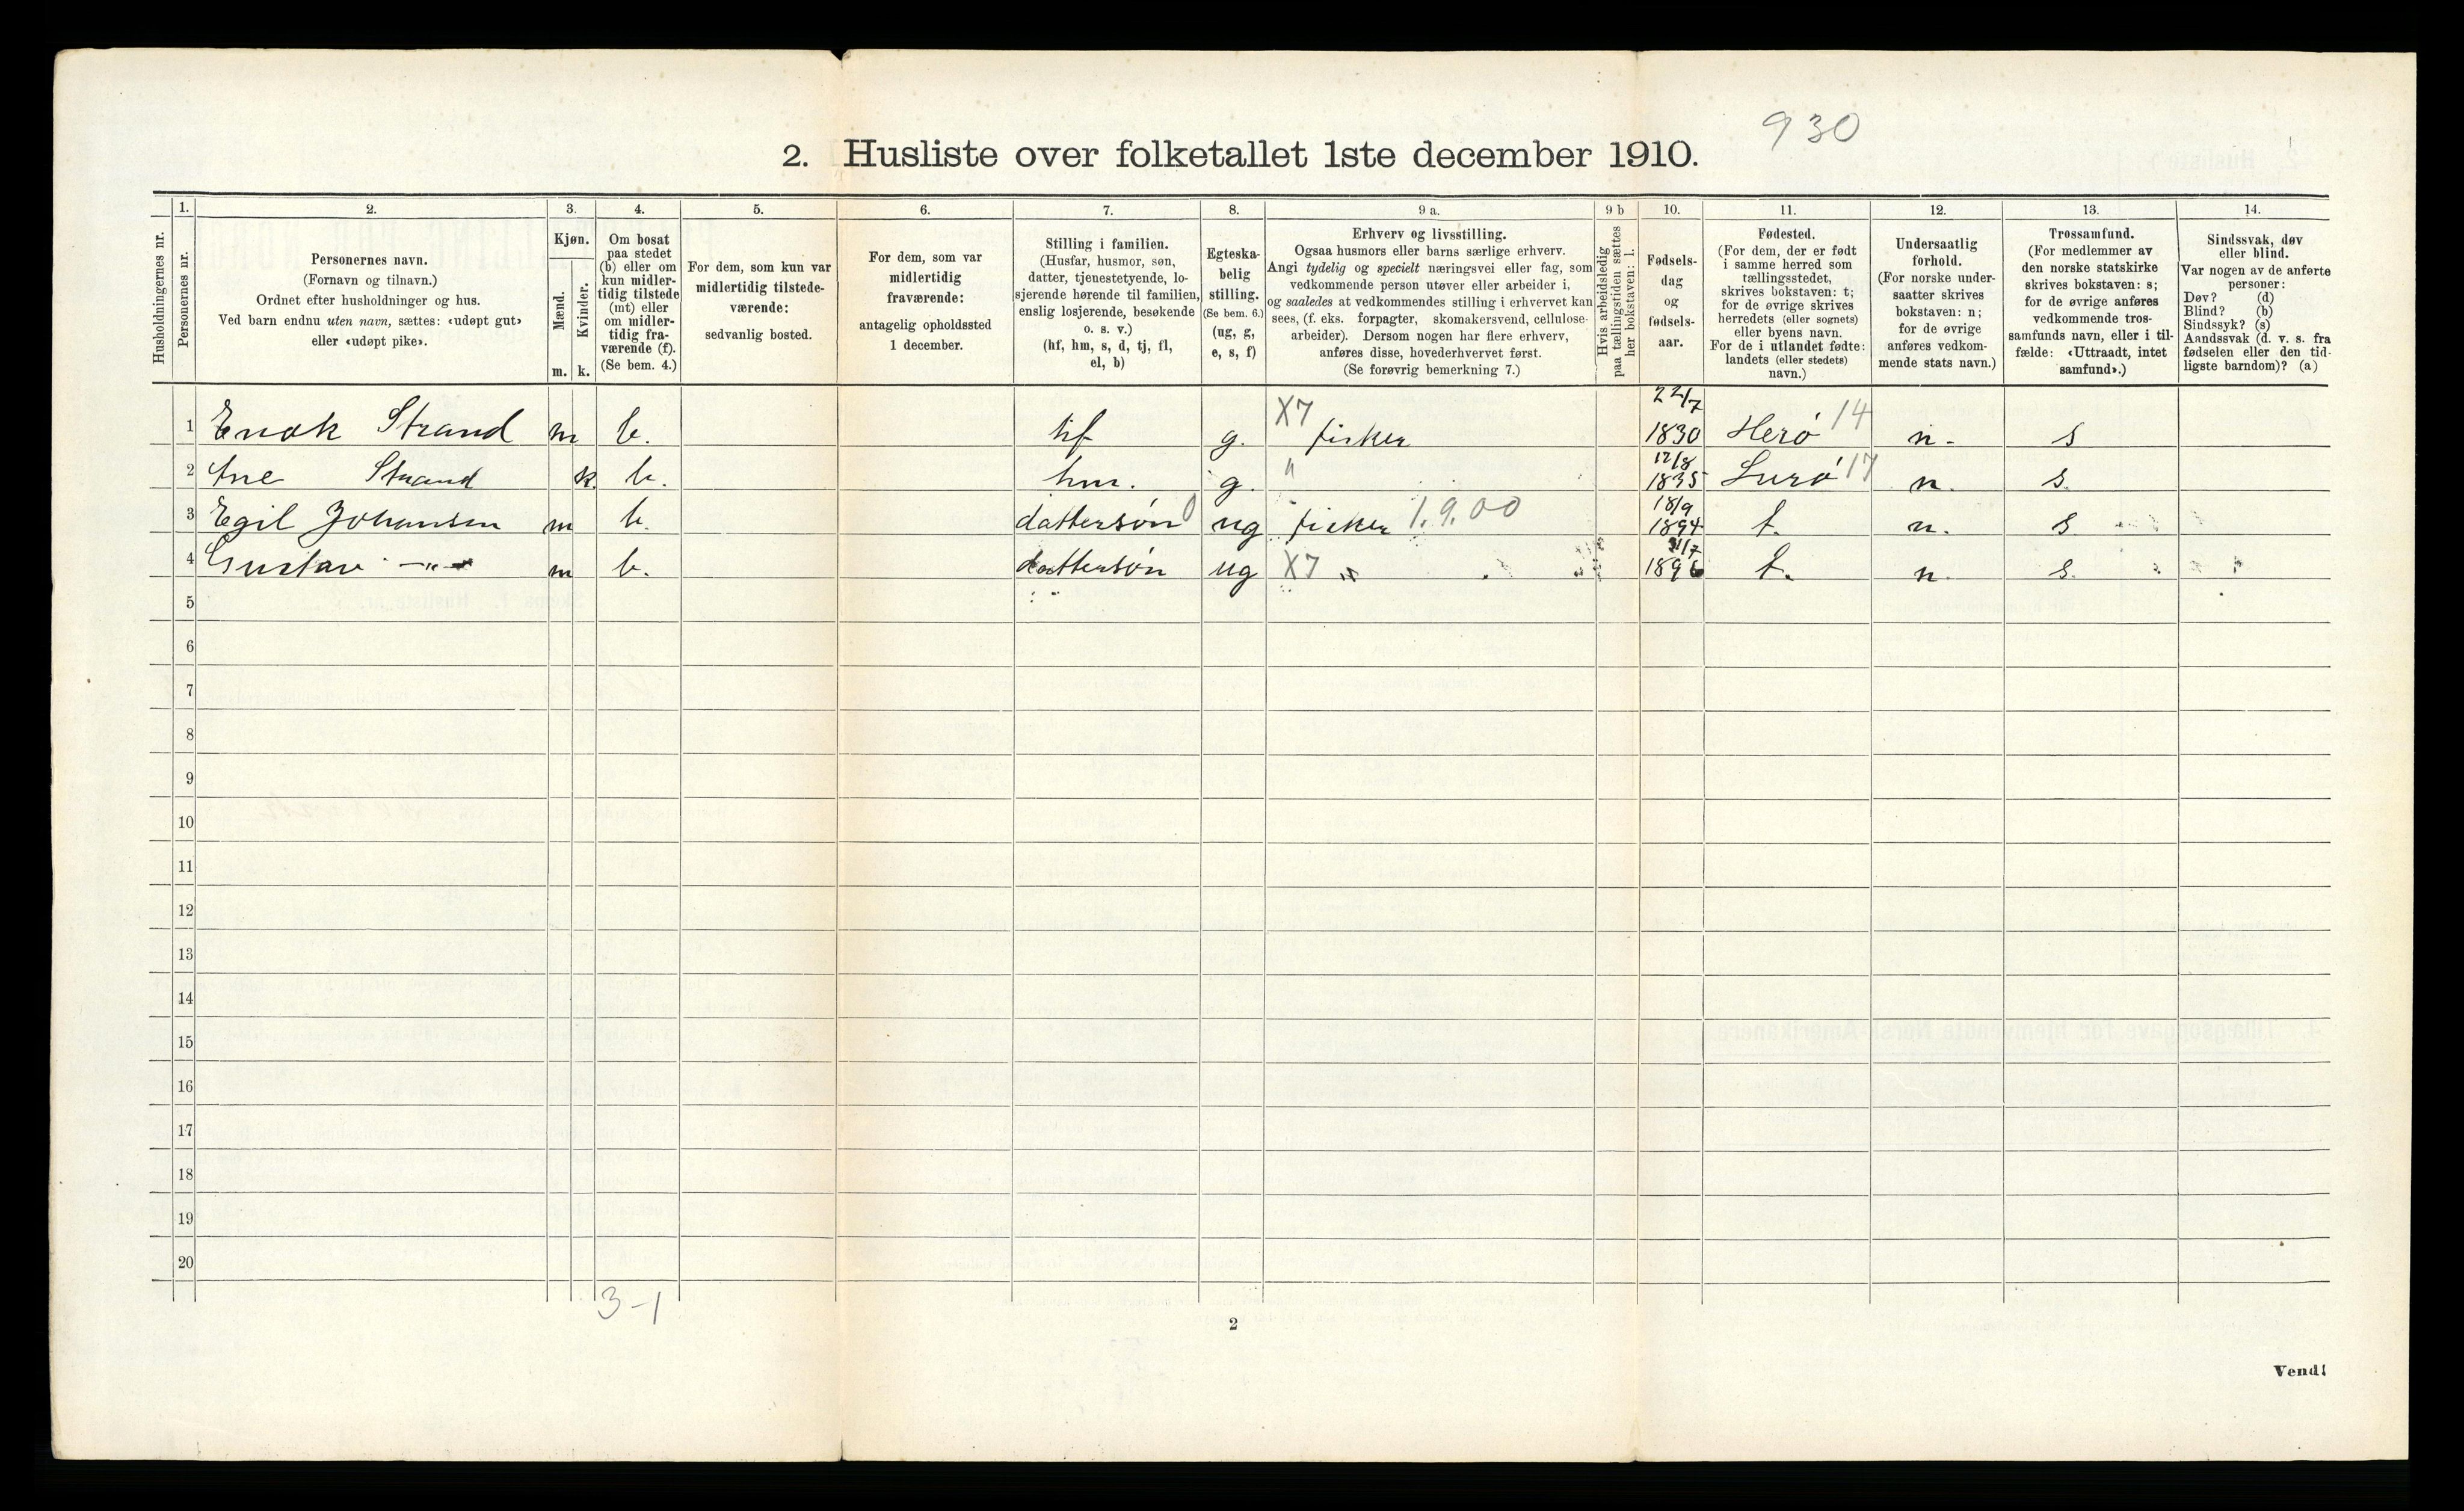 930
2. Husliste over folketallet 1ste december 1910.
1. 2. 3. 4. 5. 6. 7. 8. 9 a. 9 b 10. 11. 12. 13. 14.
Husholdningernes nr.
Personernes nr.
Personernes navn.
(Fornavn og tilnavn.)
Ordnet efter husholdninger og hus.
Ved barn endnu uten navn, sættes: «udøpt gut»
eller «udøpt pike».
Kjøn.
Mænd.
Kvinder.
m. k.
Om bosat
paa stedet
(b) eller om
kun midler-
tidig tilstede
(mt) eller
om midler-
tidig fra-
værende (f).
(Se bem. 4.)
For dem, som kun var
midlertidig tilstede-
værende:
sedvanlig bosted.
For dem, som var
midlertidig
fraværende:
antagelig opholdssted
1 december.
Stilling i familien.
(Husfar, husmor, søn,
datter, tjenestetyende, lo-
sjerende hørende til familien,
enslig losjerende, besøkende
o. s. v.)
(hf, hm, s, d, tj, fl,
el, b)
Egteska-
belig
stilling.
(Se bem. 6.)
(ug, g,
e, s, f)
Erhverv og livsstilling.
Ogsaa husmors eller barns særlige erhverv.
Angi tydelig og specielt næringsvei eller fag, som
vedkommende person utøver eller arbeider i,
og saaledes at vedkommendes stilling i erhvervet kan
sees, (f. eks. forpagter, skomakersvend, cellulose-
arbeider). Dersom nogen har flere erhverv,
anføres disse, hovederhvervet først.
(Se forøvrig bemerkning 7.)
Hvis arbeidsledig
paa tællingstiden sættes
her bokstaven: l.
Fødsels-
dag
og
fødsels-
aar.
Fødested.
(For dem, der er født
i samme herred som
tællingsstedet,
skrives bokstaven: t;
for de øvrige skrives
herredets (eller sognets)
eller byens navn.
For de i utlandet fødte:
landets (eller stedets)
navn.)
Undersaatlig
forhold.
(For norske under-
saatter skrives
bokstaven: n;
for de øvrige
anføres vedkom-
mende stats navn.)
Trossamfund.
(For medlemmer av
den norske statskirke
skrives bokstaven: s;
for de øvrige anføres
vedkommende tros-
samfunds navn, eller i til-
fælde: «Uttraadt, intet
samfund».)
Sindssvak, døv
eller blind.
Var nogen av de anførte
personer:
Døv? (d)
Blind? (b)
Sindssyk? (s)
Aandssvak (d. v. s. fra
fødselen eller den tid-
ligste barndom)? (a)
1 Enok Strand m b. hf g. X7 fisker 22/7 1830 Herö 14 n. s
2 Ane Strand k. b. hm. g. " 12/8 1835 Lurö 17 n. s.
3 Egil Johansen m b. dattersön 0 ug fisker 1.9.00 18/9 1894 t. n. s
4 Gustav -"- m b. dattersön ug X7 " 1896 t. n. s.
5
6
7
8
9
10
11
12
13
14
15
16
17
18
19
20
3-1
2
Vend!